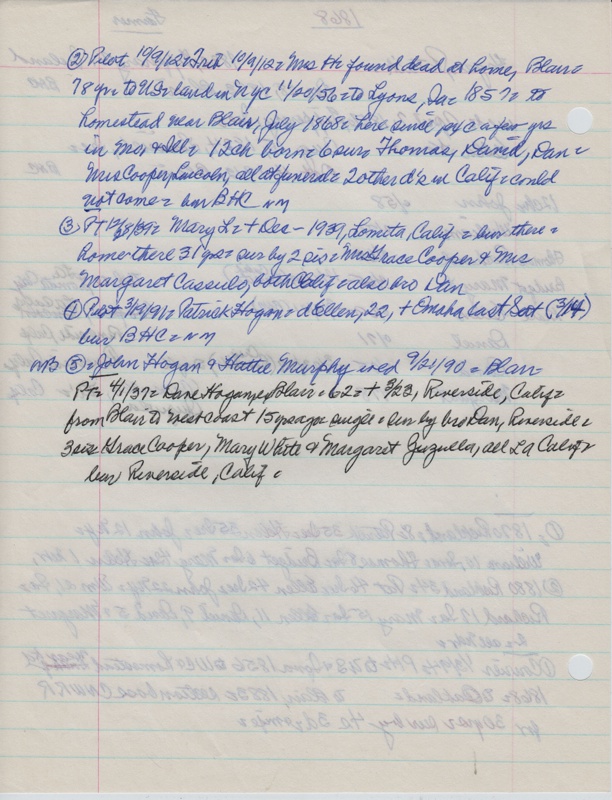 ② Pilot 10/9/12 = Trib 10/9/12 = Mrs PH found dead at home, Blair =
78 yrs to US = land in Nyc 11/20/56 = to Lyons, Ia = 1857 = to
homestead near Blair, July 1868 = here since exc a few yrs
in Mo, & Ill = 12 ch born = 6 sur = Thomas, David, Dan =
Mrs Cooper, Lincoln, all at funeral = 2 other d's in Calif = could
not come = bur BHC = nm
③ PT = Mary L = + Dec - 1939, Lomita, Calif = bur there =
home there 31 yrs = sur by 2 sis = Mrs Grace Cooper & Mrs
Margaret both Calif = also bro Dan
④ Pilot 3/19/91 = Patrick Hogan = d Ellen, 22, + Omaha last Sat (3/14)
bur BHC = nm
MB ⑤ = John Hogan & Hattie Murphy wed 9/21/90 = Blair =
PT = 4/1/37 = Dave Hogan, Blair = 62 = + 3/23, Riverside, Calif =
from Blair to west coast 15 yrs ago = single = sur by bro Dan, Riverside =
3 sis Grace Cooper, Mary White & Margaret all LA Calif =
bur Riverside, Calif =